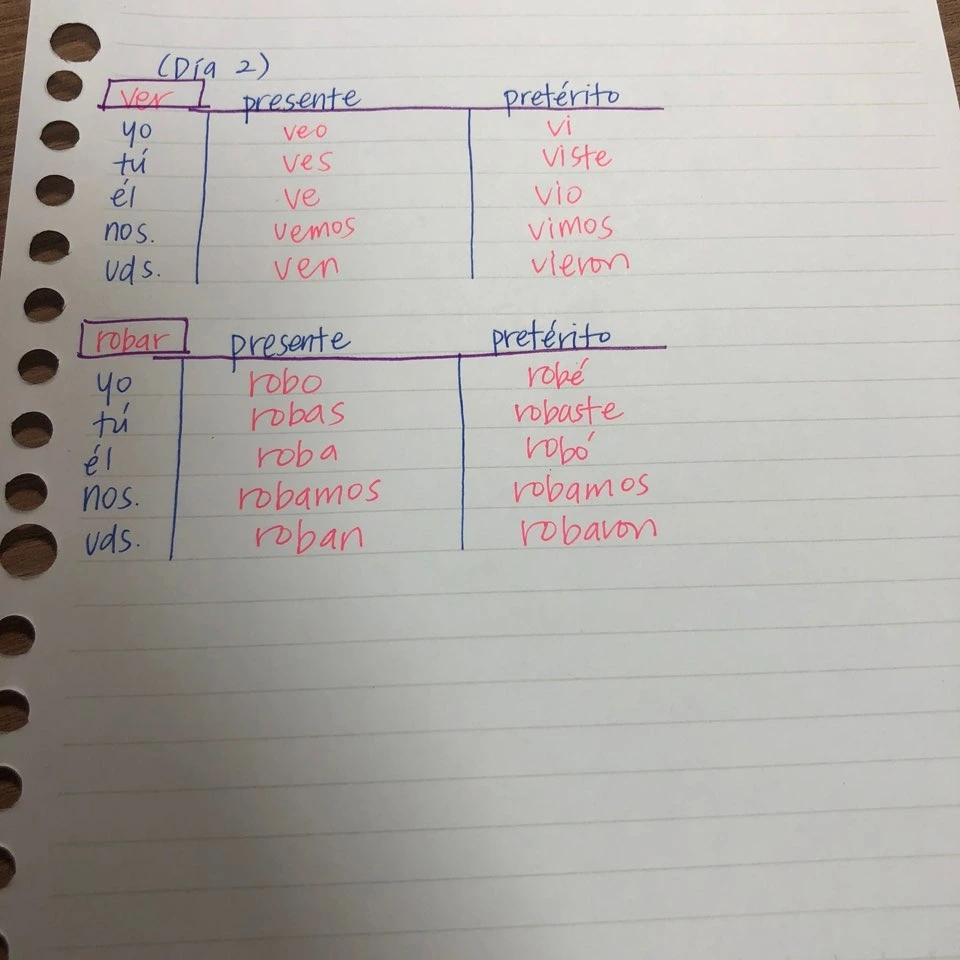 (Día 2)
ver presente pretérito
yo veo vi
tú ves viste
él ve vio
nos. vemos vimos
uds. ven vieron
robar presente pretérito
yo robo robé
tú robas robaste
él roba robó
nos. robamos robamos
uds. roban robaron